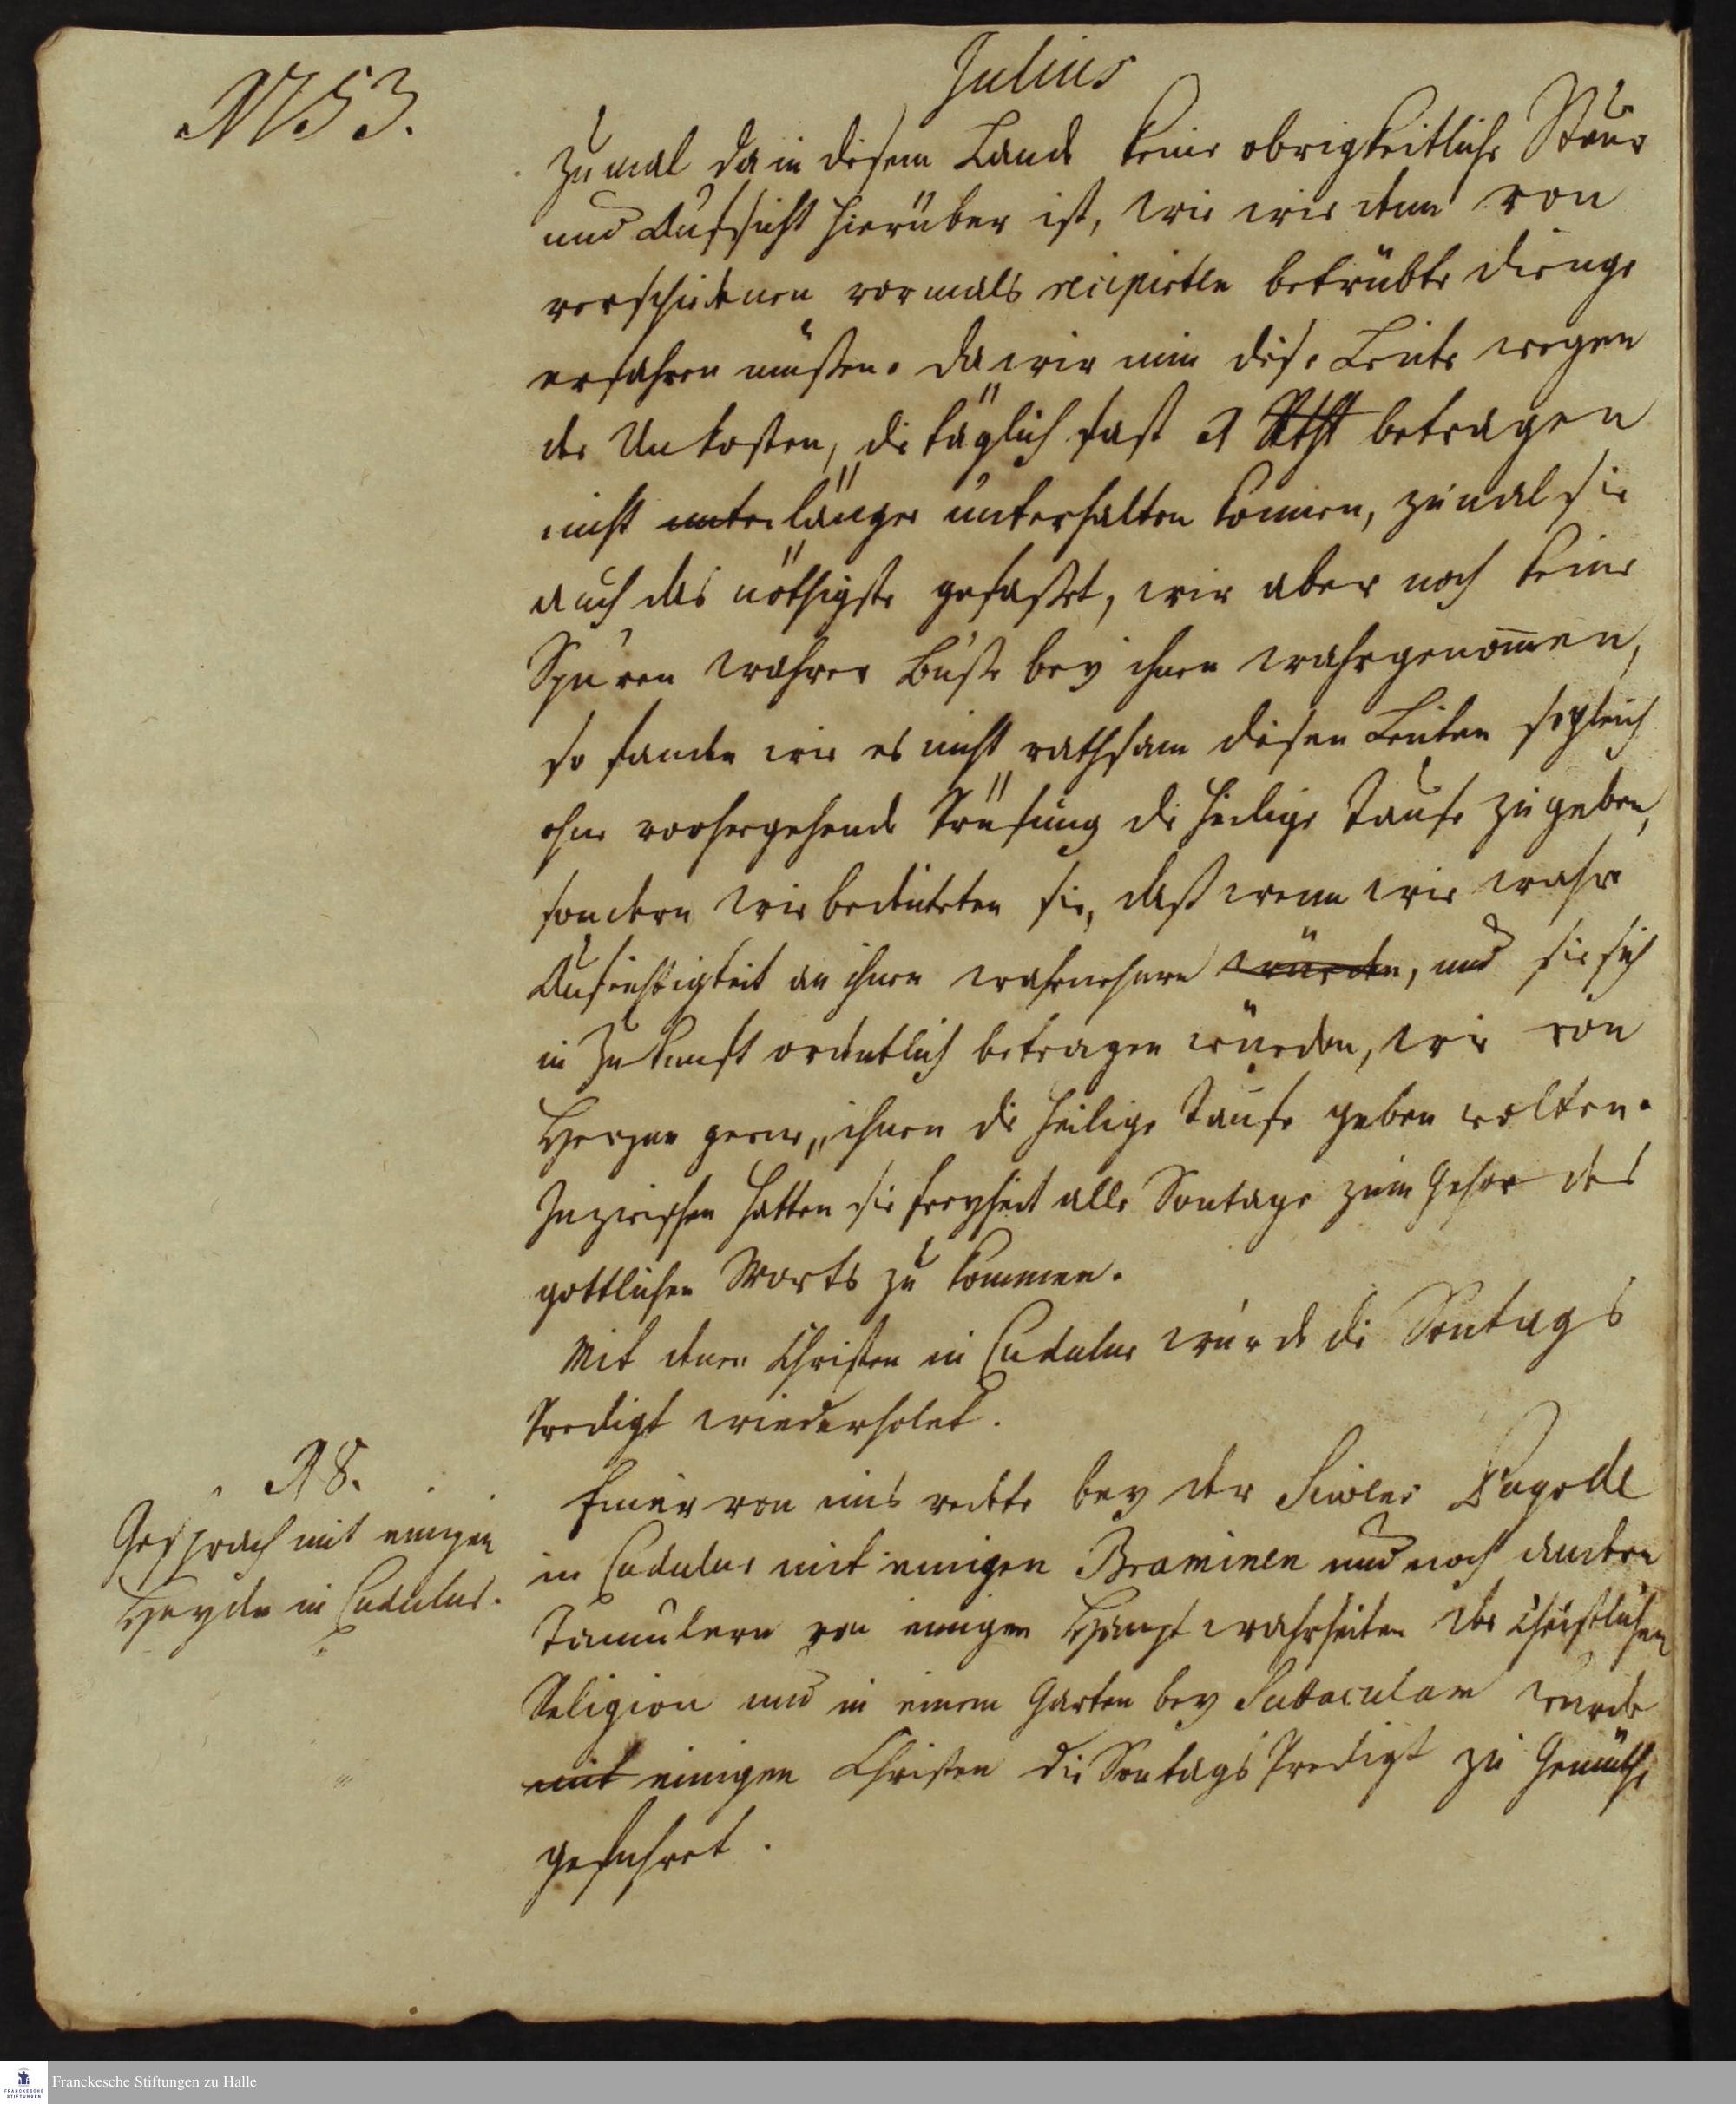 1753.
Julius
zumal da in disem Lande keine obrigkeitliche Steur
und Aufsicht hierüber ist, wie wir denn von
verschiedenen vormals recipirten betrübte dienge
erfahren müßen. da wir nun dise Leute wegen
der Unkosten, die täglich fast 1 Rthl betragen
nicht unter länger unterhalten konnen, zumal sie
auch das nöthigste gefaßet, wir aber noch keine
Spuren wahrer Buße bey ihnen wahrgenom̅en,
so fanden wir es nicht rathsam disen Leuten sogleich
ohne vorhergehende Prüfung die heilige Taufe zu geben,
sondern wir bedeuteten sie, daß wenn wir wahre
Aufrichtigkeit an ihnen wahrnehmen würden, und sie sich
in Zukunft ordentlich betragen würden, wir von
Herzen gerne, ihnen die heilige Taufe geben wolten.
Inzwischen hatten sie freyheit alle Sontage zum Gehor des
gottlichen Worts zu kommen.
Mit denen Christen in Cudulur wurde die Sontags
Predigt wiederholet.
18.
Gesprach mit einigen
Heyden in Cudulur.
Einer von uns redete bey der Siwens Pagode
in Cudulur mit einigen Braminen und noch andern
Tamulern von einigen Hauptwahrheiten der Christlichen
Religion und in einem Garten bey wurde
mit einigen Christen die Sontags Predigt zu Gemüthe
gefuhret.
Franckesche Stiftungen zu Halle
FRANCKESCHE
STIFTUNGEN